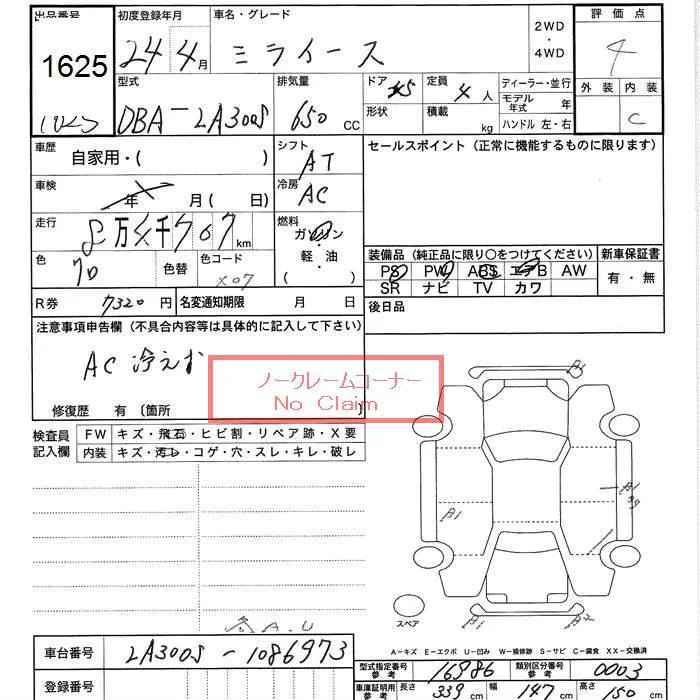 出品番号 初度登録年月 車名・グレード 2WD・4WD 評価点
1625 24年4月 ミライース 4
型式 排気量 ドア 5 定員 4人 ディーラー・並行 外装 内装
DBA-LA300S 650 CC 形状 積載 kg モデル年式 年 C
ハンドル 左・右
車歴 自家用・( ) シフト AT セールスポイント (正常に機能するものに限ります)
車検 年 月( 日) 冷房 AC
走行 8万 千707km 燃料 ガソリン・軽・油 ( )
装備品 (純正品に限り○をつけてください) 新車保証書
色 色替 色コード X07 PS PW ABS エアB AW 有・無
SR ナビ TV カワ
R券 7320円 名変通知期限 月 日 後日品
注意事項申告欄 (不具合内容等は具体的に記入して下さい)
AC 冷えず
ノークレームコーナー
No Claim
修復歴 有 〔箇所 〕
検査員記入欄 FW キズ・飛石・ヒビ割・リペア跡・X要
内装 キズ・汚レ・コゲ・穴・スレ・キレ・破レ
スペア
A-キズ E-エクボ U-凹み W-補修跡 S-サビ C-腐食 XX-交換済
車台番号 LA300S-1086973 型式指定番号 参考 16986 類別区分番号 参考 0003
登録番号 車庫証明用 参考 長さ 339cm 幅 147cm 高さ 150cm